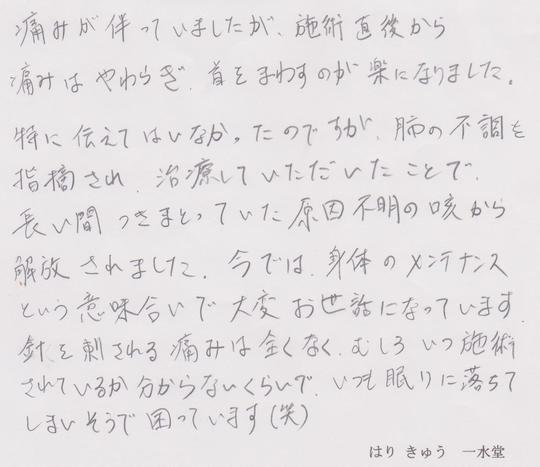 痛みが伴っていましたが、施術直後から
痛みはやわらぎ、首をまわすのが楽になりました。
特に伝えてはいなかったのですが、肺の不調を
指摘され、治療していただいたことで、
長い間つきまとっていた原因不明の咳から
解放されました。今では、身体のメンテナンス
という意味合いで大変お世話になっています。
針を刺される痛みは全くなく、むしろいつ施術
されているか分からないくらいで、いつも眠りに落ちて
しまいそうで困っています(笑)
はり きゅう 一水堂